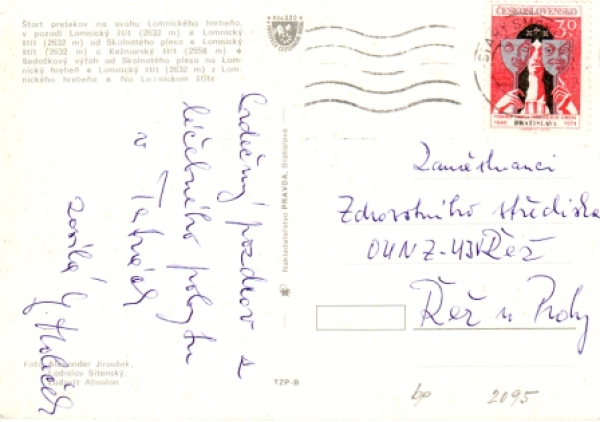 Štart pretekov na svahu Lomnického hrebeňa,
v pozadí Lomnický štít (2632 m) e Lomnický
štít (2632 m) od Skalnatého plesa e Lomnický
štít (2632 m) a Kežmarský štít (2558 m) e
Sedačkový výťah od Skalnatého plesa na Lom-
nický hrebeň e Lomnický štít (2632 m) z Lom-
nického hrebeňa e Na Lomnickom štíte
Srdečný pozdrav z
léčebného pobytu
v Tatrách
zasílá
Foto: Alexander Jiroušek,
Ladislav Sitenský,
Rudolf Absolon
Nakladateľstvo PRAVDA, Bratislava
TZP-B
ČESKOSLOVENSKO
30
BRATISLAVA
1949
1974
Zaměstnanci
Zdravotního střediska
OÚNZ-
Řež
Řež u Prahy
bp
2095